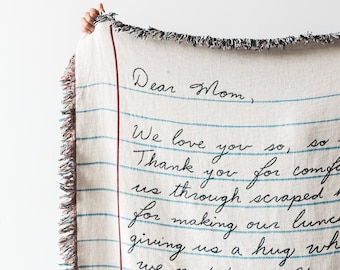 Dear Mom,
We love you so, so
Thank you for
us through scraped
for making our
giving us a hug